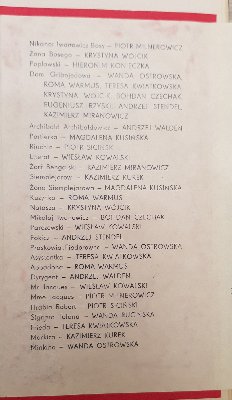 Nikanor Iwanowicz Bosy – PIOTR MILNEROWICZ
Żona Bosego – KRYSTYNA WÓJCIK
Popławski – HIERONIM KONIECZKA
Dom Gribojedowa – WANDA OSTROWSKA
ROMA WARMUS, TERESA KWIATKOWSKA
KRYSTYNA WÓJCIK, BOHDAN CZECHAK
EUGENIUSZ RZYSKI, ANDRZEJ STENDEL
KAZIMIERZ MIRANOWICZ
Archibald Archibaldowicz – ANDRZEJ WALDEN
Portierka – MAGDALENA KUSIŃSKA
Riuchin – PIOTR SICIŃSKI
Literat – WIESŁAW KOWALSKI
Żorż Bengalski – KAZIMIERZ MIRANOWICZ
Siemplejarow – KAZIMIERZ KUREK
Żona Siemplejarowa – MAGDALENA KUSIŃSKA
Kuzynka – ROMA WARMUS
Natasza – KRYSTYNA WÓJCIK
Mikołaj Iwanowicz – BOHDAN CZECHAK
Parczewski – WIESŁAW KOWALSKI
Fokicz – ANDRZEJ STENDEL
Praskowia Fiodorowna – WANDA OSTROWSKA
Asystentka – TERESA KWIATKOWSKA
Annuszka – ROMA WARMUS
Dyrygent – ANDRZEJ WALDEN
Mr Jacques – WIESŁAW KOWALSKI
Mme Jacques – PIOTR MILNEROWICZ
Hrabia Robert – PIOTR SICIŃSKI
Signora Tofana – WANDA RUCIŃSKA
Frieda – TERESA KWIATKOWSKA
Markiza – KAZIMIERZ KUREK
Minkina – WANDA OSTROWSKA